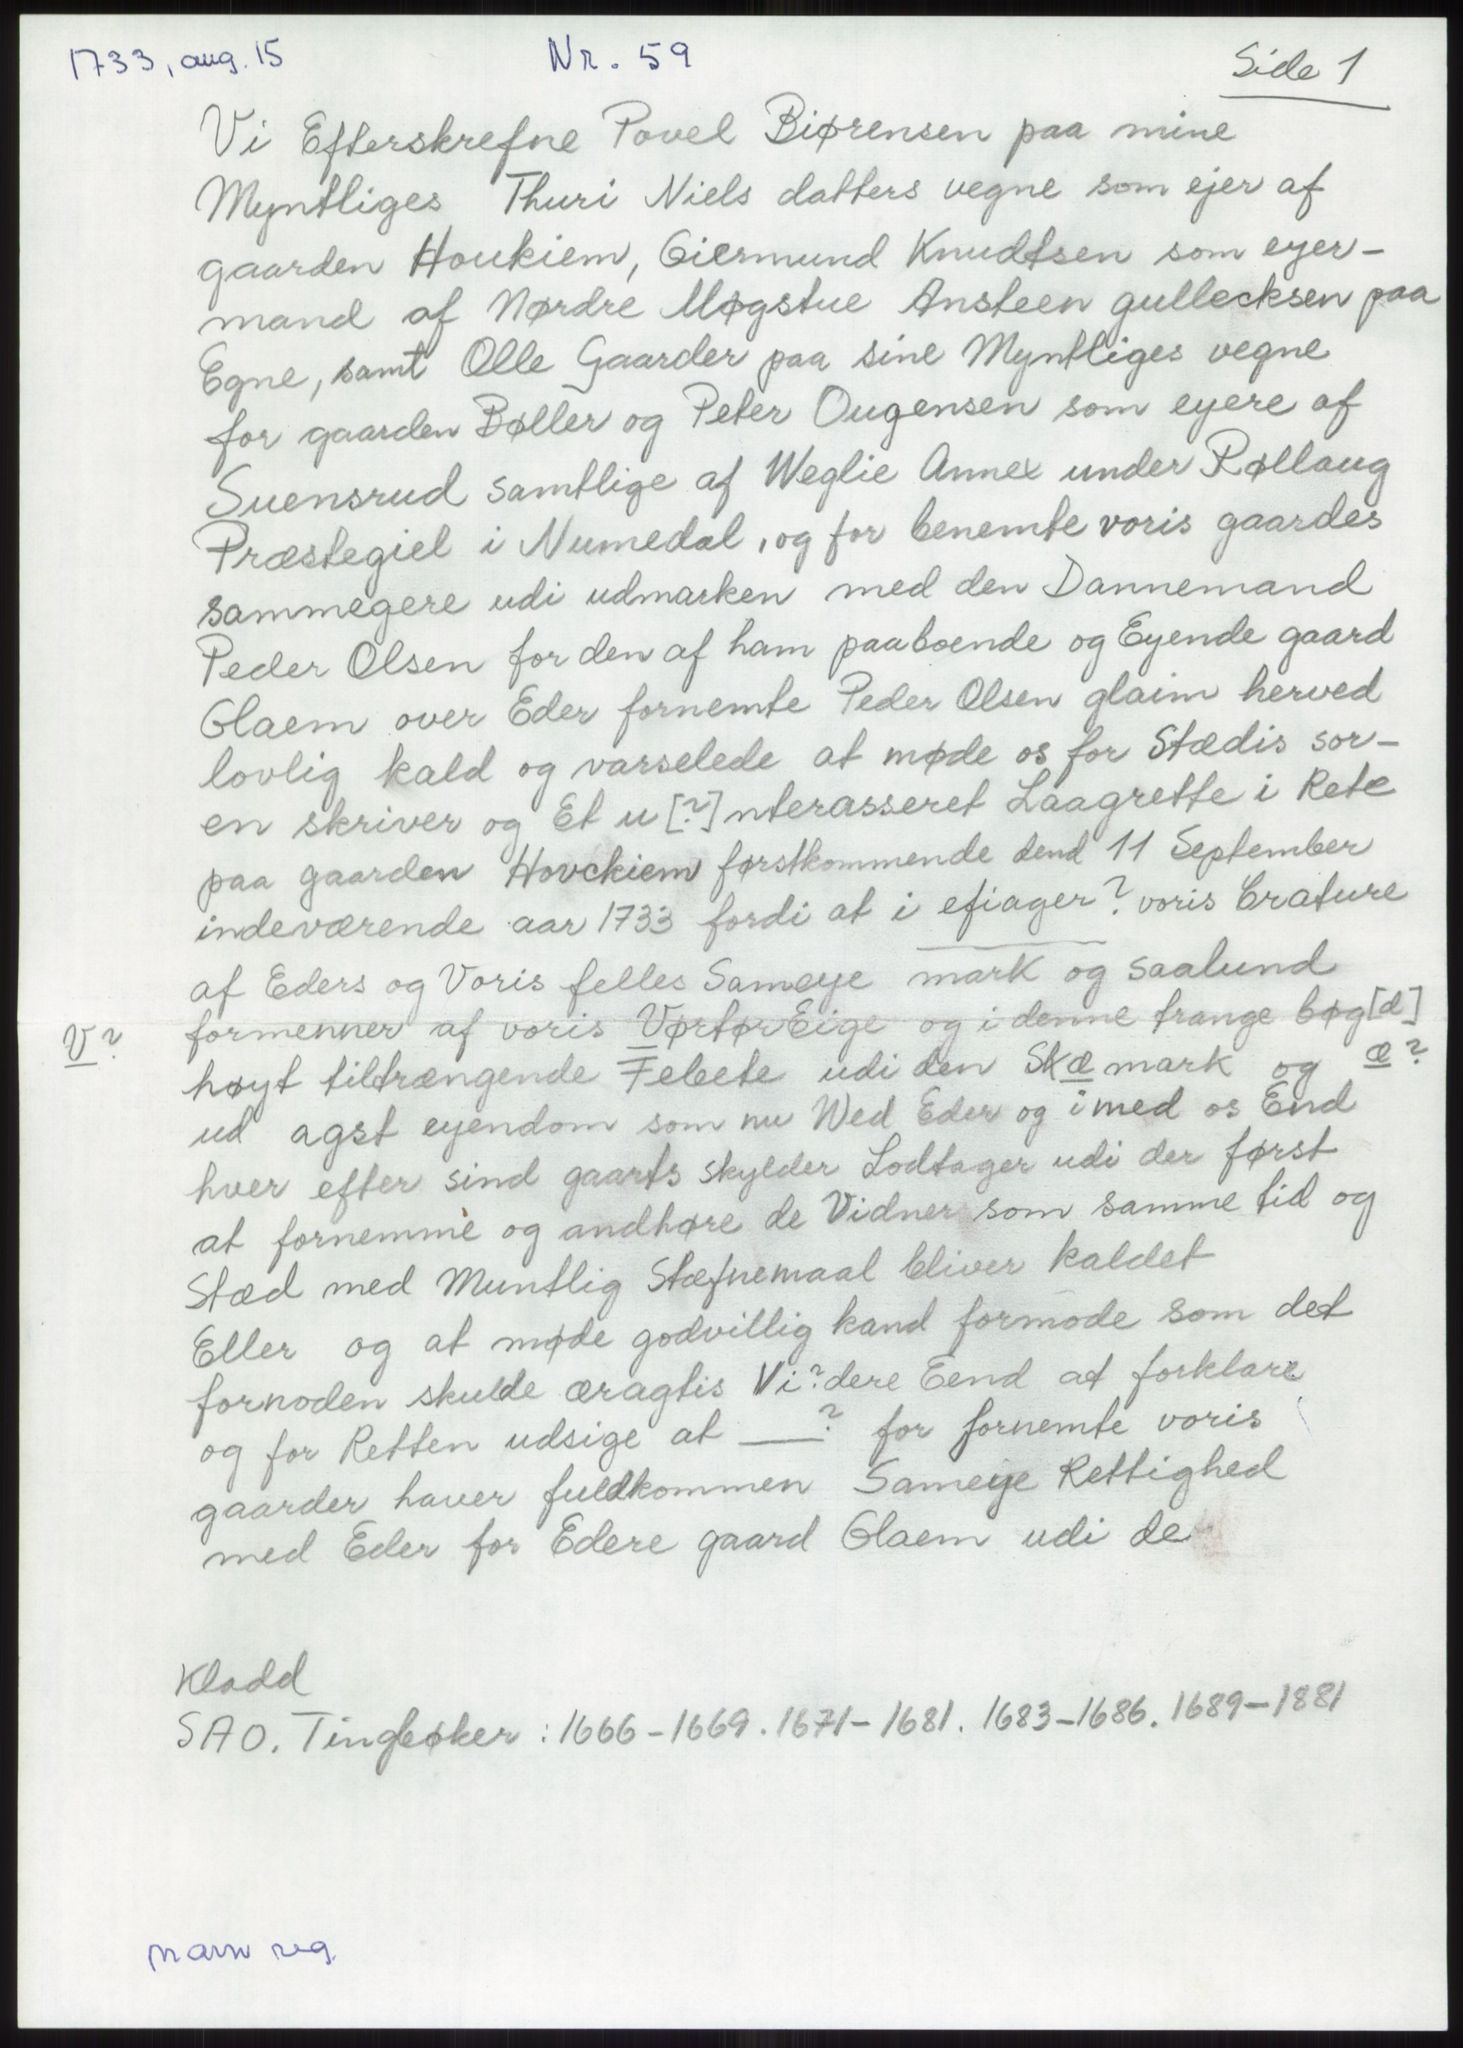 1733, aug. 15 Nr. 59 Side 1
Vi Efterskrefne Povel Biørensen paa mine
Myntliges Thuri Niels datters vegne som ejer af
gaarden Houkiem, Giermund Knudtsen som eyer-
mand af Nørdre Møgstue Ansteen gullecksen paa
Egne, samt Olle Gaarder paa sine Myntliges vegne
for gaarden Bøller og Peter Ougensen som eyere af
Suensrud samtlige af Weglie Annex under Røllaug
Præstegiel i Numedal, og for benemte voris gaardes
sammegere udi udmarken med den Dannemand
Peder Olsen for den af ham paaboende og Eyende gaard
Glaem over Eder fornemte Peder Olsen glaim herved
lovlig kald og varselede at møde os for Stædis sor-
en skriver og Et u [?] nterasseret Laagrette i Rete
paa gaarden Hovckiem førstkommende dend 11 September
indeværende aar 1733 fordi at i efiager? voris Crature
af Eders og Voris felles Sameye mark og saalund
V? formenner af voris VørtørEige og i denne trange bøg[d]
høyt tiltrængende Febete udi den Skæmark og æ?
ud agst eyendom som nu Wed Eder og i med os End
hver efter sind gaarts skylder Lodtager udi der først
at fornemme og andhøre de Vidner som samme tid og
Stæd med Muntlig Stæfnemaal bliver kaldet
Eller og at møde godvillig kand formode som det
fornoden skulde æragtis Vi?dere Eend at forklare
og for Retten udsige at ___? for fornemte voris
gaarder haver fuldkommen Sameye Rettighed
med Eder for Edere gaard Glaem udi de
Kladd
SAO. Tingbøker: 1666-1669. 1671-1681. 1683-1686. 1689-1881
navn reg.